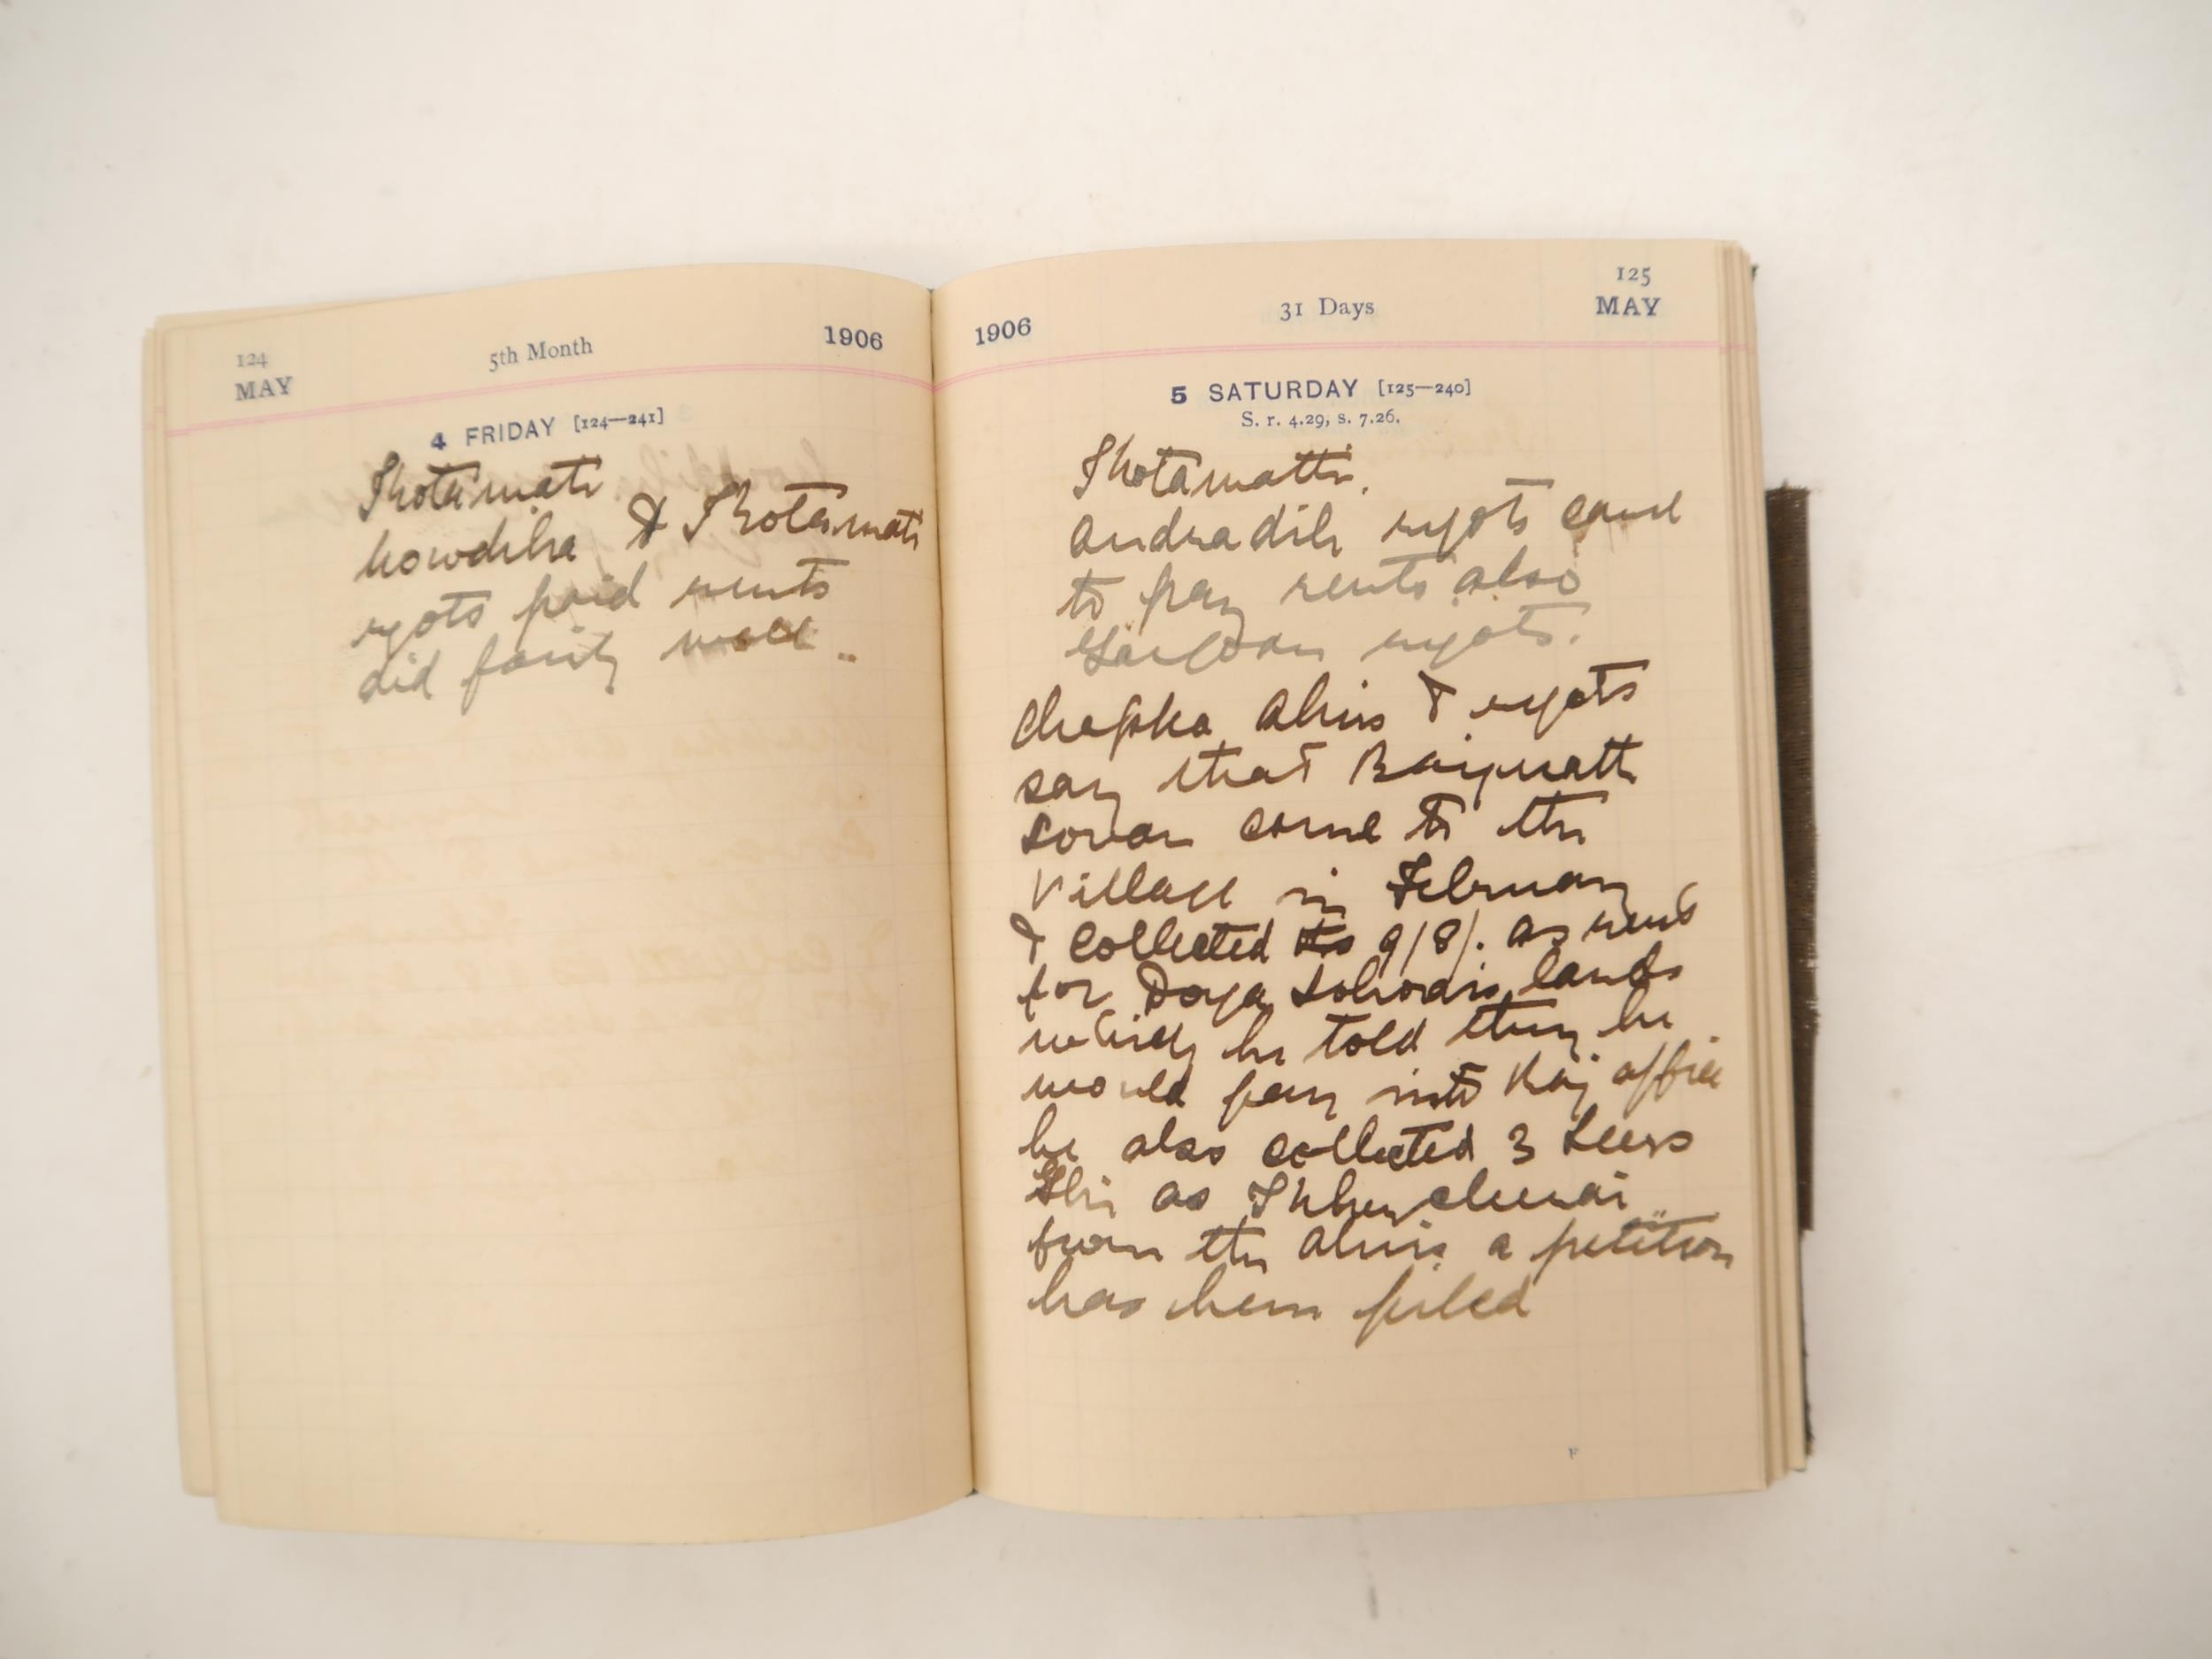 124
MAY
5th Month
1906
4 FRIDAY [124—241]
Thotamati
howdiha & Thotamati
ryots paid rents
did fairly well ..
1906
31 Days
125
MAY
5 SATURDAY [125—240]
S. r. 4.29, s. 7.26.
Thotamatti.
Andradih ryots came
to pay rents also
ryots.
Chapka Ahirs & ryots
say that Baijnath
Sowar came to the
Village in February
& collected Rs 9/8/. as rent
for Doya Lohar's lands
which he told they he
would pay into Raj office
he also collected 3 Seers
Ghi as
from the Ahirs a petition
has been filed
F